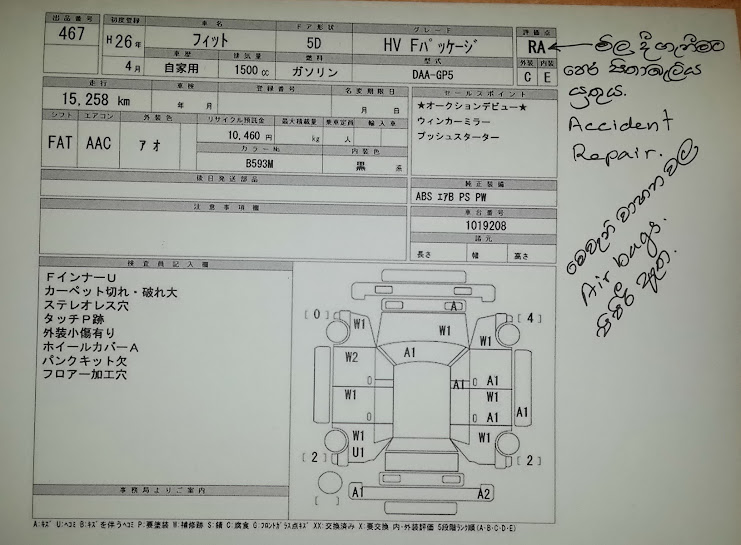 出品番号 初度登録 車名 ドア形状 グレード 評価点
467 H 26年 フィット 5D HV Fパッケージ RA
4月 車歴 排気量 燃料 型式 外装 内装
自家用 1500cc ガソリン DAA-GP5 C E
走行 車検 登録番号 名変期限日 セールスポイント
15,258 km 年 月 月 日
★オークションデビュー★
ウィンカーミラー
プッシュスターター
シフト エアコン 外装色 リサイクル預託金 最大積載量 乗車定員 輸入車
FAT AAC アオ 10,460 円 kg 人
カラーNo 内装色
B593M 黒 系
後日発送部品 純正装備
ABS エアB PS PW
注意事項欄 車台番号
1019208
諸元
長さ 幅 高さ
検査員記入欄
FインナーU
カーペット切れ・破れ大
ステレオレス穴
タッチP跡
外装小傷有り
ホイールカバーA
パンクキット欠
フロアー加工穴
事務局よりご案内
A
[0] W1 W1 W1 [4]
W2 A1
A1 0 A1
W1 W1
0 A1 A1
W1 W1
[2] U1 [2]
A1 A2
[ ]
A:キズ U:ヘコミ B:キズを伴うヘコミ P:要塗装 W:補修跡 S:錆 C:腐食 G:フロントガラス点キズ XX:交換済み X:要交換 内・外装評価 5段階ランク順(A・B・C・D・E)
Accident
Repair.
Air bags.